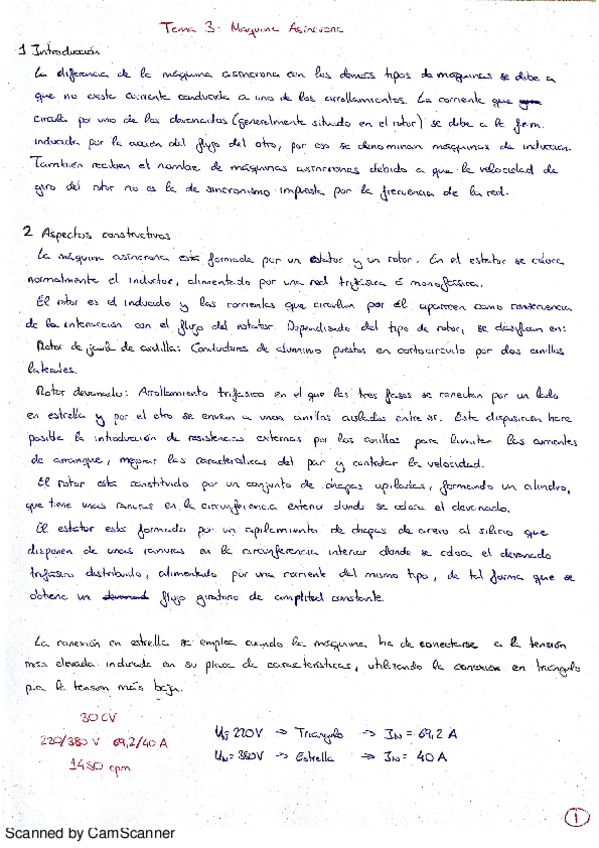 Tema 3: Máquina Asíncrona
1 Introducción
La diferencia de la máquina asíncrona con los demás tipos de máquinas se debe a
que no existe corriente conducida a uno de los arrollamientos. La corriente que
circula por uno de los devanados (generalmente situado en el rotor) se debe a la f.e.m.
inducida por la acción del flujo del otro, por eso se denominan máquinas de inducción.
También reciben el nombre de máquinas asíncronas debido a que la velocidad de
giro del rotor no es la de sincronismo impuesta por la frecuencia de la red.
2 Aspectos constructivos
La máquina asíncrona está formada por un estator y un rotor. En el estator se coloca
normalmente el inductor, alimentado por una red trifásica o monofásica.
El rotor es el inducido y las corrientes que circulan por él aparecen como consecuencia
de la interacción con el flujo del estator. Dependiendo del tipo de rotor, se clasifican en:
Rotor de jaula de ardilla: Conductores de aluminio puestos en cortocircuito por dos anillos
laterales.
Rotor devanado: Arrollamiento trifásico en el que las tres fases se conectan por un lado
en estrella y por el otro se envían a unos anillos aislados entre sí. Esta disposición hace
posible la introducción de resistencias externas por los anillos para limitar las corrientes
de arranque, mejorar las características del par y controlar la velocidad.
El rotor está constituido por un conjunto de chapas apiladas, formando un cilindro,
que tiene unas ranuras en la circunferencia exterior donde se coloca el devanado.
El estator está formado por un apilamiento de chapas de acero al silicio que
disponen de unas ranuras en la circunferencia interior donde se coloca el devanado
trifásico distribuido, alimentado por una corriente del mismo tipo, de tal forma que se
obtiene un flujo giratorio de amplitud constante.
La conexión en estrella se emplea cuando la máquina ha de conectarse a la tensión
más elevada indicada en su placa de características, utilizando la conexión en triángulo
para la tensión más baja.
30 CV
220/380 V 69,2/40 A
1480 rpm
= 220V → Triángulo → IN = 69,2 A
UN = 380V → Estrella → IN = 40 A
1
Scanned by CamScanner